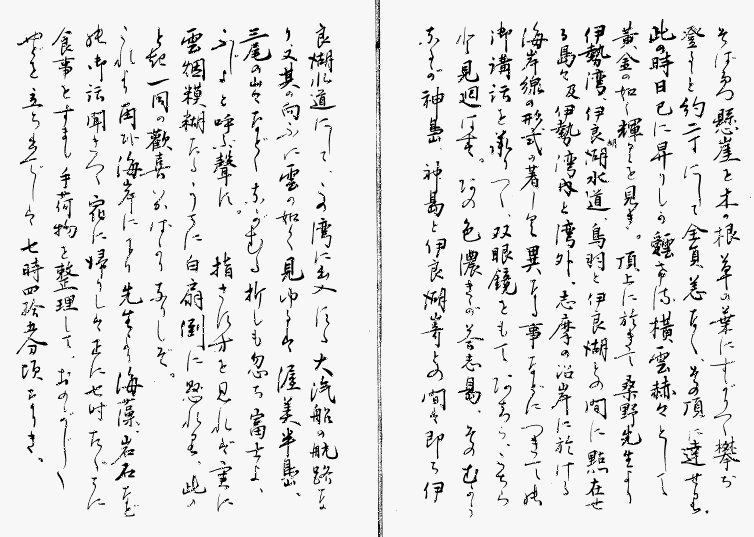 そばたつ懸崖を木の根草の葉にすがりつゝ攀ぢ
登ること約二丁にして全員恙なく、その頂に達せり。
此の時日已に昇りしが靉靆たる横雲赫々として
黄金の如く輝くを見き。頂上に於きて桑野先生より
伊勢湾、伊良湖水道、鳥羽と伊良湖との間に點在せ
る島々及伊勢湾内と湾外、志摩の沿岸に於ける
海岸線の形式の著しく異なる事などにつきての
御講話を承りつゝ、双眼鏡をもてあちら、こちら
と見廻はす。あの色濃きが答志島、そのむかう
なるが神島、神島と伊良湖岬との間は即ち伊
良湖水道にして、この湾に出入する大汽船の航路な
り又其の向ふに雲の如く見ゆるは渥美半島、
三尾の山々などながむる折しも忽ち富士よ、
ふじよと呼ぶ聲に。指さす方を見れば実に
雲烟糢糊たるうちに白扇倒に懸れる、此の
とき一同の歓喜いかばかりなりしぞ。
これより再び海岸に下り先生より海藻、岩石など
の御話聞きつゝ宿に帰りしは正に七時たゞちに
食事をすまし手荷物を整理して、おのがじゝ
やどを立ち出でしは七時四拾五分頃なりき。